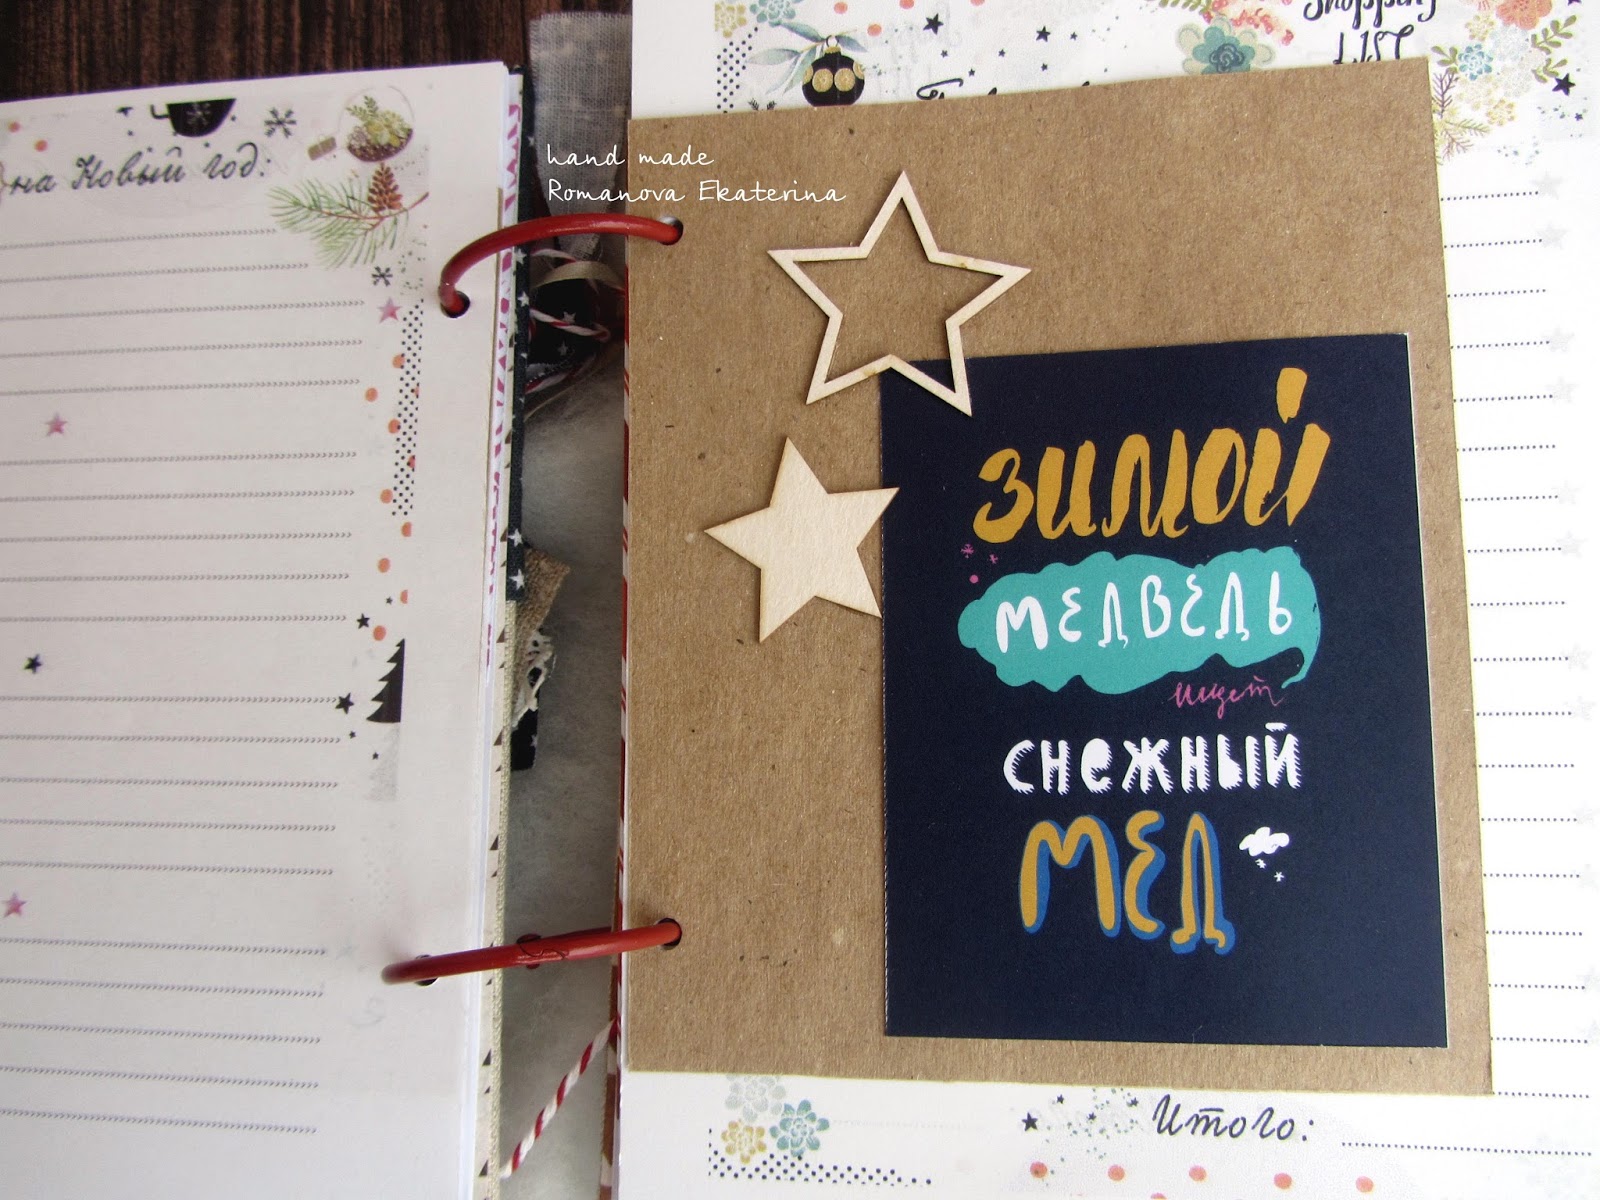 на Новый год:
hand made
Romanova Ekaterina
Shopping
LIST
зимой
медведь
ищет
снежный
мед
Итого: